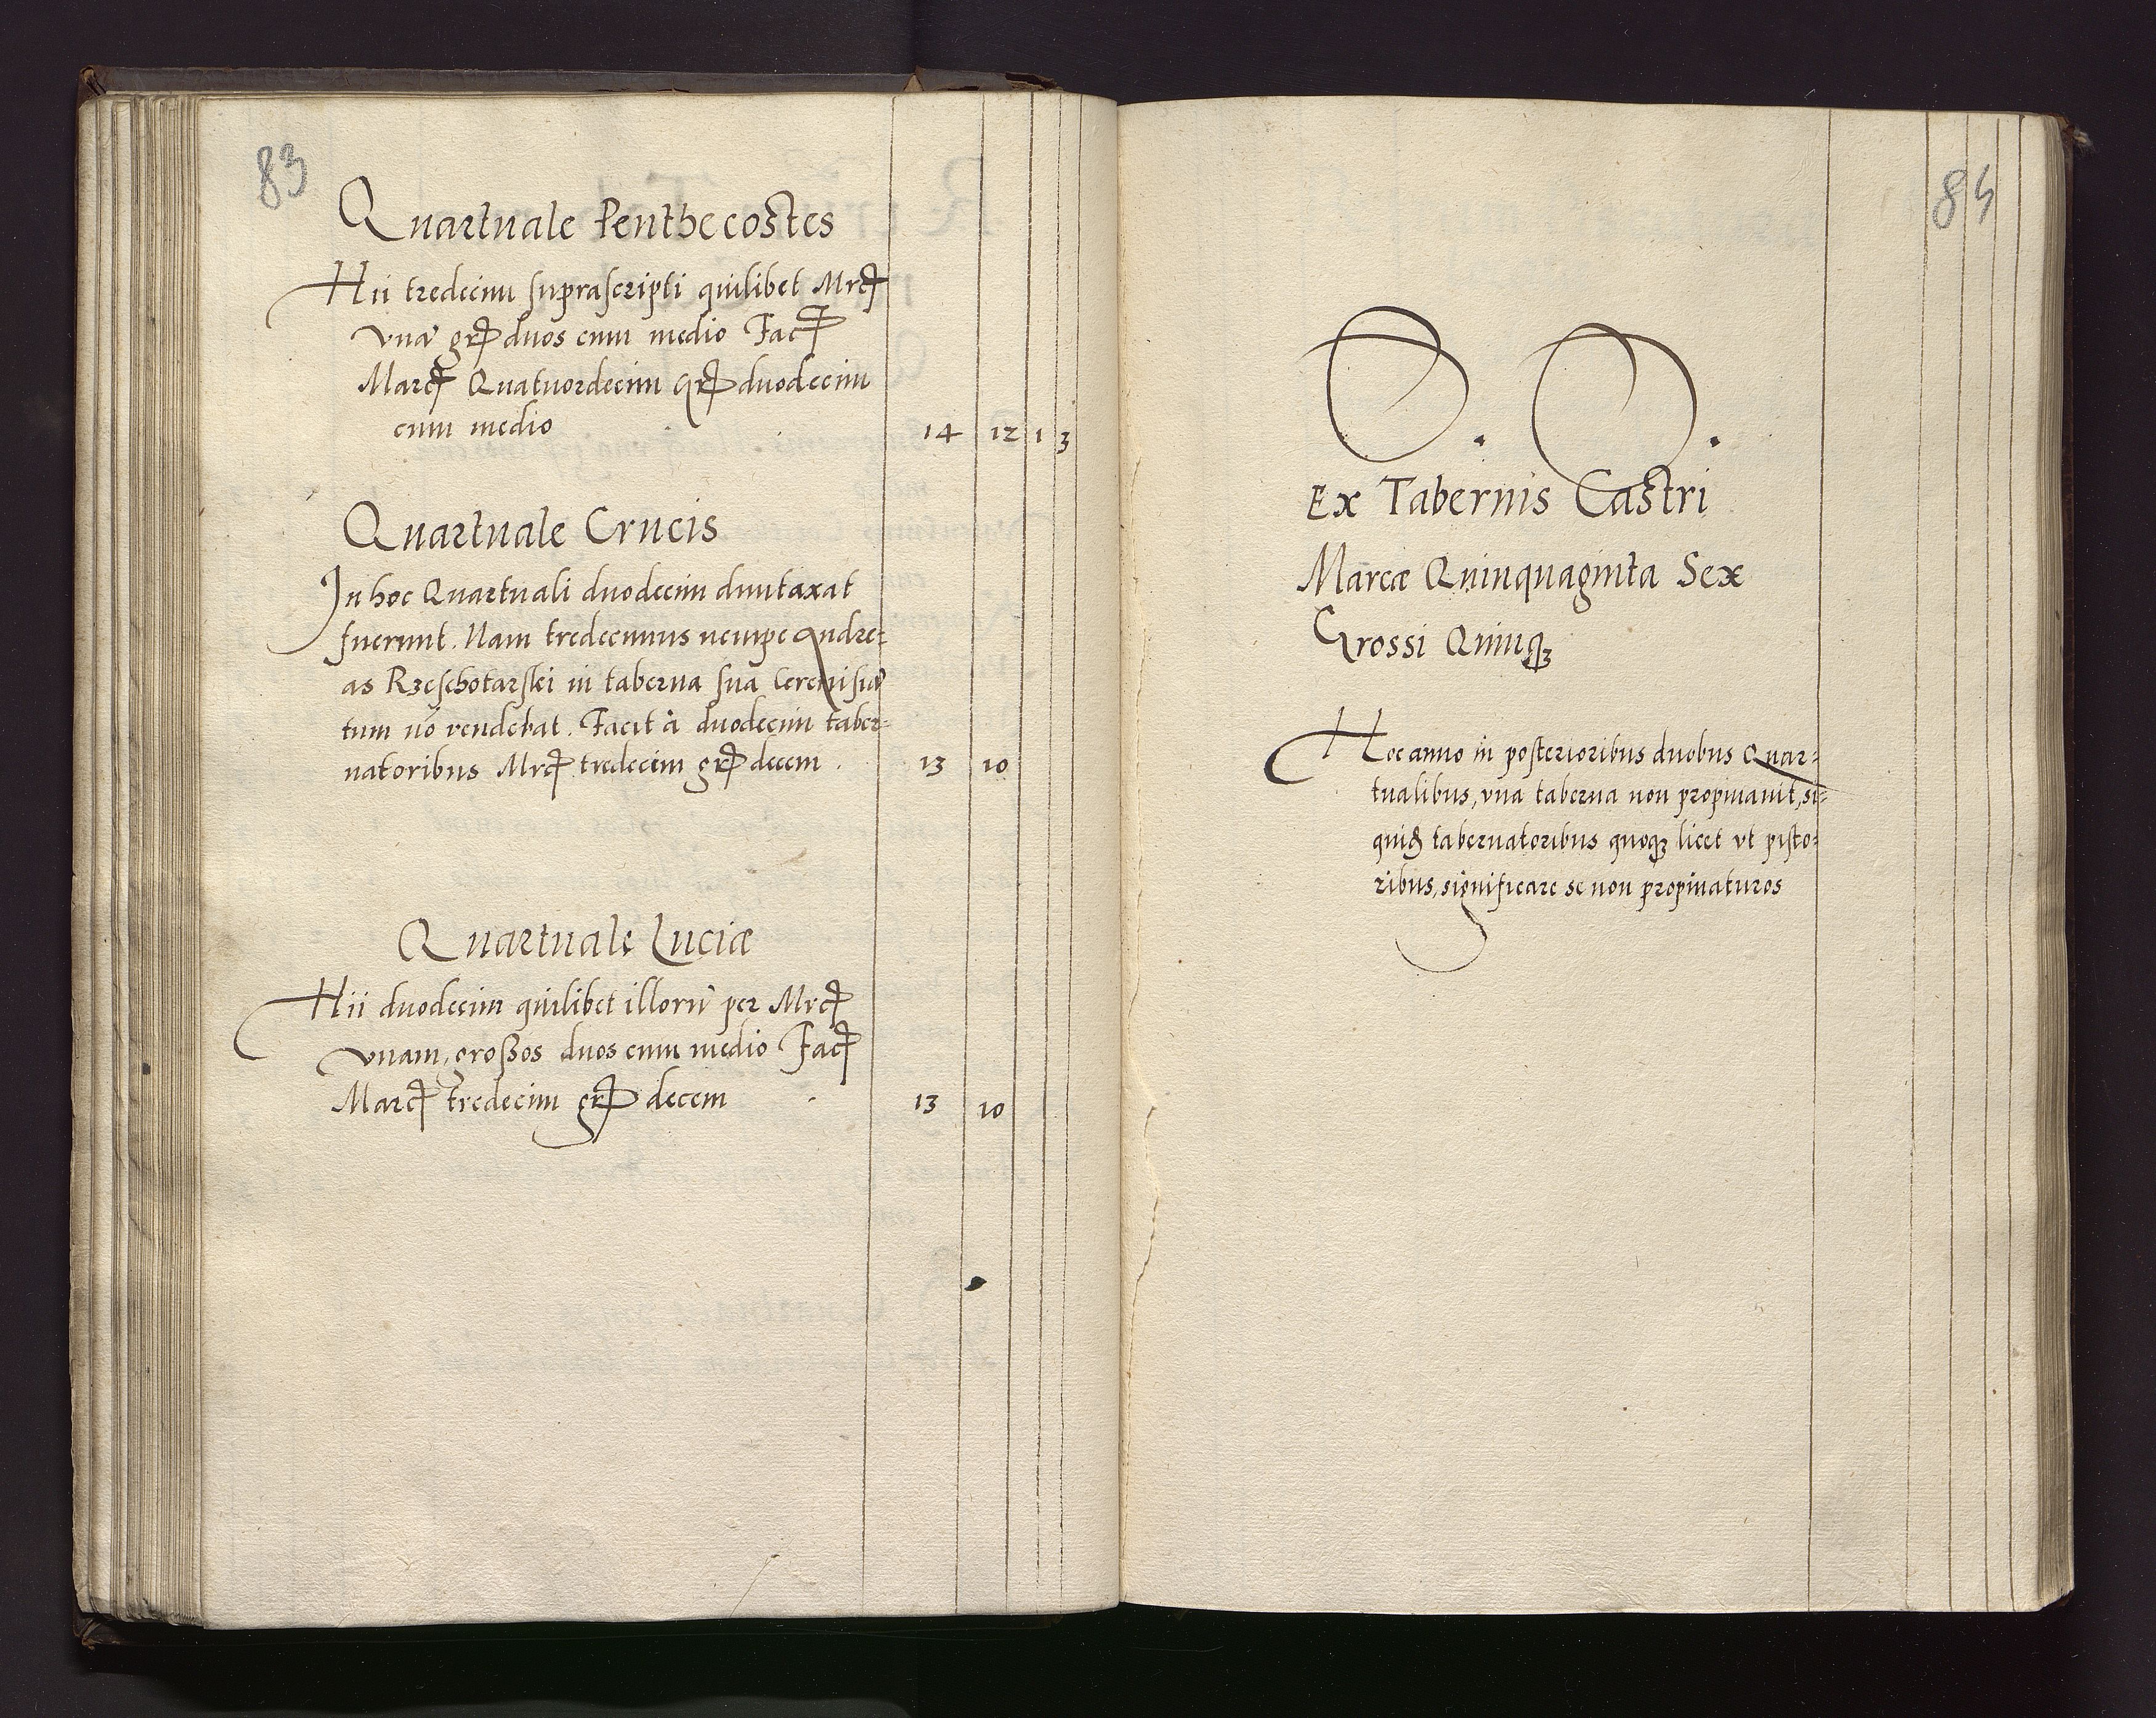 83
Quartuale Penthecostes
Hii tredecim suprascripti quilibet Mrcꝭ
vnā grꝭ duos cum medio Facꝭ
Marcꝭ Quatuordecim Grꝭ duodecim
cum medio 14 12 1 3
Quartuale Crucis
In hoc Quartuali duodecim duntaxat
fuerunt. Nam tredecimus nempe Andre-
as Rzeschotarski in taberna sua Cereuisiā
tum nō vendebat. Facit à duodecim taber-
natoribus Mrcꝭ tredecim grꝭ decem . 13 10
Quartuale Luciæ
Hii duodecim quilibet illorū per Mrcꝭ
vnam, großos duos cum medio Facꝭ
Marcꝭ tredecim grꝭ decem . 13 10
84
Ex Tabernis Castri
Marcæ Quinquaginta Sex
Grossi Quinqꝫ
Hoc anno in posterioribus duobus Quar-
tualibus, vna taberna non propinauit, si-
quid tabernatoribus quoqꝫ licet vt pisto-
ribus, significare se non propinaturos